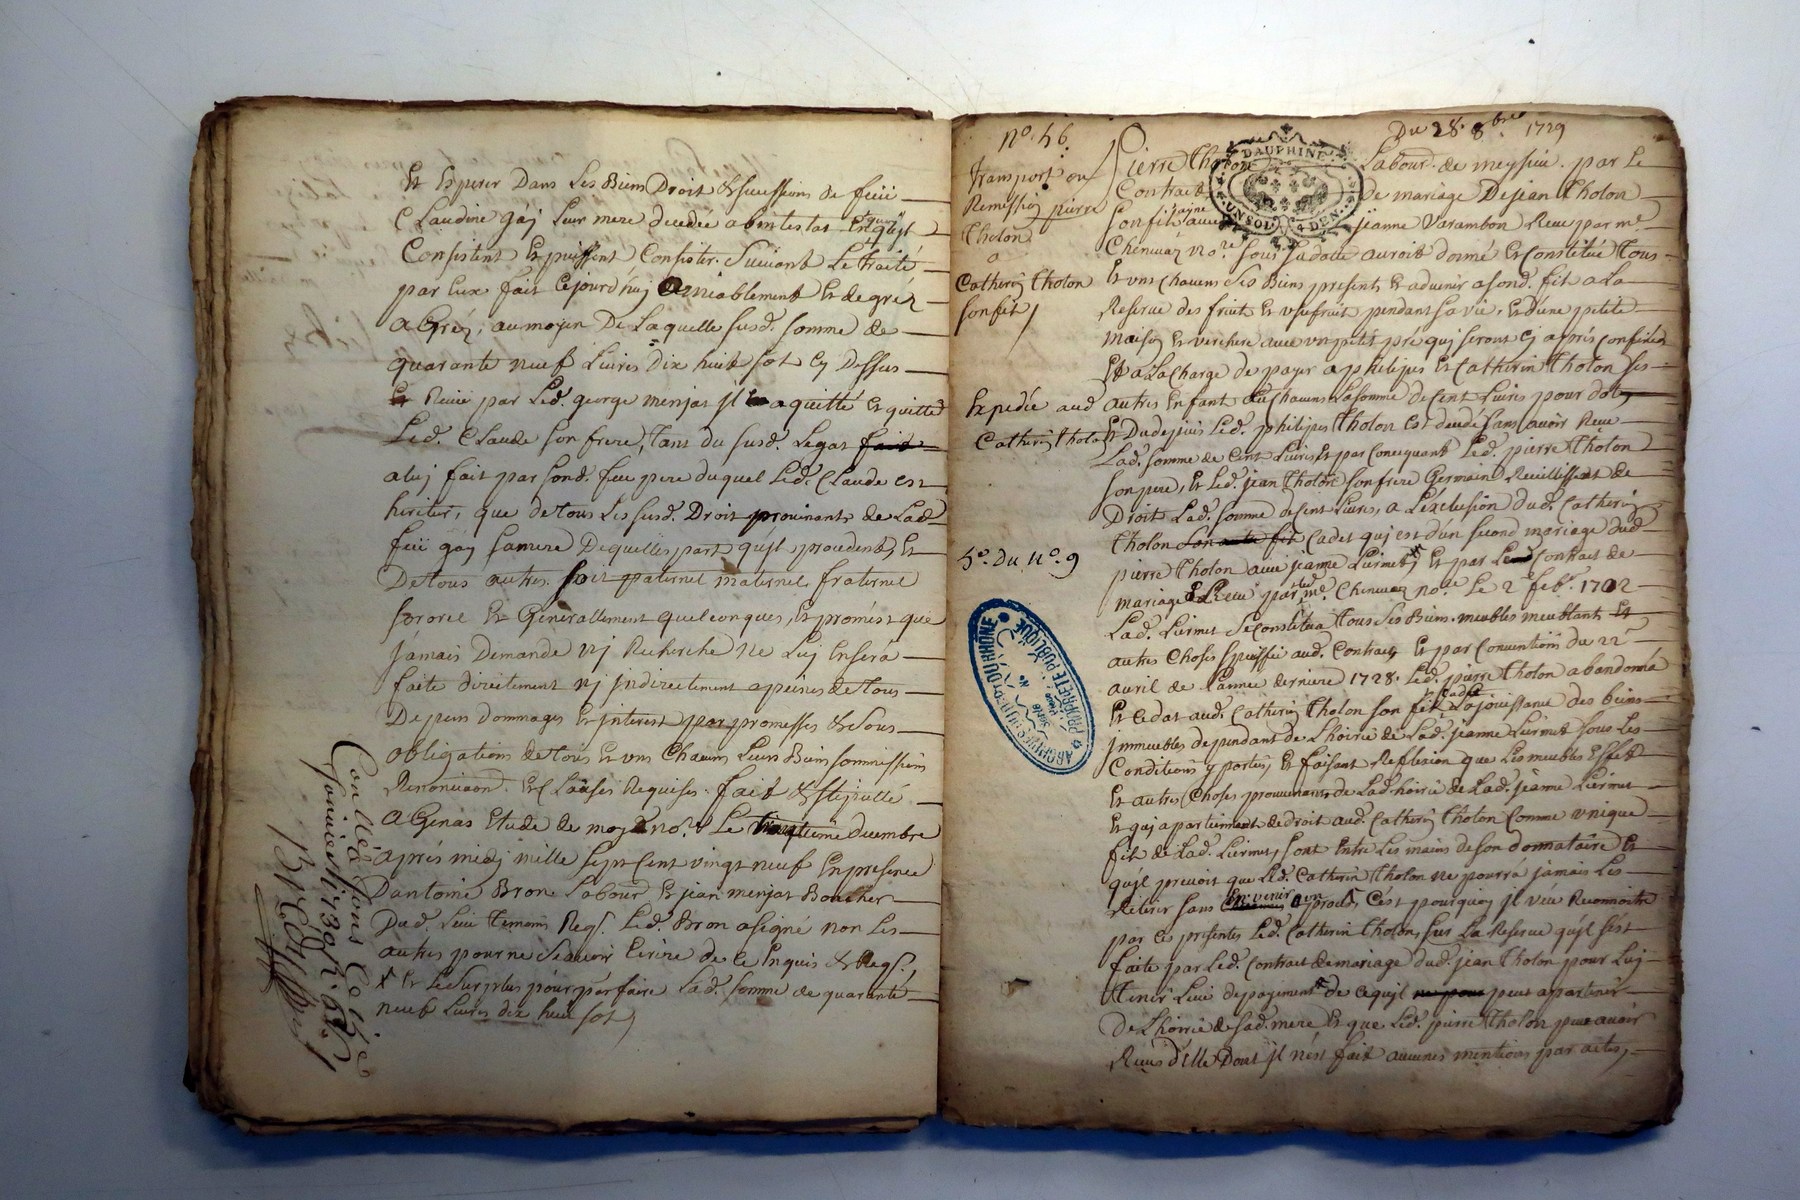 Et Esperer Dans Les Biens Droit & suessions de feüe
Claudine gaÿ Leur mere decedée abintestat En quoÿ qu'il
Consistent Et puissent Consister. Suivant Le traité
par Eux fait Cejourd'huj Amiablement Et de gréz
a Gréz, au moyen De Laquelle susd. somme de
quarante neuf Livres dix huit sol Cy Dessus
Reüe par Led. george menjat Jl a quitté Et quitte
Led. Claude son frere, Tant du susd. Legat
a luj fait par sond. feu pere duquel Led. Claude est
heritier, que de tous Les susd. Droit provenants de Lad.
feüe gaÿ sa mere Dequelles part qu'jl procedent, Et
De tous autres soit paternel maternel fraternel
sororel Et Generallement quelconques, Et promést que
jámais Demande nj Recherche ne Luj Enserà
faite direitement nj jndirectement a peines de tous
Depens Dommages Et jnterest par promesses & sous
obligations de tous Et uns Chacuns Leurs Biens soumissions
Renonciaōn. Et Clauses Requises. fait & stipullé
A Genas Etude de moÿ no.re Le Vingtieme decembre
aprés midj mille sept Cent vingt neuf En presence
D'antoine Bron Labour. Et jean menjat Boucher
Dud. Lieu Temoins Reqs. Led. Bron a signé non Les
autres pour ne Scavoir Ecrire de ce Enquis & Reqs.
Et Le Surplus pour parfaire Lad. somme de quarante
neuf Livres dix huit sol
Conllé à Lions Ce 15e
Janvier 1730 R.
no. 46.
Du 28. 8bre 1729
Transport ou
Remission pierre
Tholon
a
Catherin Tholon
son fils
Expedié aud
Catherin Tholon
5e. Du no. 9
DAUPHINÉ
UN SOL 4 DEN.
Pierre Tholon Labour. de meysieu. par Le
Contrait de mariage De jean Tholon
son fils ainé avec jeanne Varambon Receu par me.
Cheneuaz no.re sous sa datte auroit donné Et Constitué Tous
Et uns Chacuns ses Biens present Et advenir a sond. fils a La
Reserve des fruits Et usufruit pendant sa vie, Et d'une petite
maison Et verchere avec un petit pré quj seront Cj aprés Confinés
Et a La Charge de payer a philipes Et Catherin Tholon ses
autres Enfant a Chacuns La somme de Cent Livres pour dot
Et Du depuis Led. philipes Tholon est decedé sans avoir Reçue
Lad. somme de Cent Livres Et par Consequant Led. pierre Tholon
son pere, Et Led. jean Tholon son frere Germain Receuillissent de
Droit Lad. somme de Cent Livres, a L'exclusion dud. Catherin
Tholon Cadet quj est d'un second mariage dud.
pierre Tholon avec jeanne Liermet, Et par Le Contrait de
mariage Receu par led. me. Cheneuaz no.re Le 2 feb. 1702
Lad. Liermet se Constitua Tous ses Biens. meubles meublants Et
autres Choses specifiée aud. Contrait, Et par Convention du 22
avril de L'année derniere 1728. Led. pierre Tholon abandonna
Et Ceda aud. Catherin Tholon son fils Cadet La joüissance des biens
jmmeubles dependant de L'hoirie de Lad. jeanne Liermet sous Les
Conditions y portés, Et faisant Reflexion que Les meubles Effet
Et autres Choses provenants de Lad. hoirie de Lad. jeanne Liermet
Et quj apartiennent de droit aud. Catherin Tholon Comme unique
fils de Lad. Liermet, sont Entre Les mains de son donnataire Et
qu'jl prevoit que Led. Catherin Tholon ne pourrá jamais Les
Retirer sans En venir a un procés, C'ést pourquoy jl veut Reconnoitre
par Ces presentes Led. Catherin Tholon, sur La Reserve qu'jl s'ést
faite par Led. Contrait de mariage dud. jean Tholon pour Luj
Tenir Lieu de payement de Ce qu'jl peut apartenir
De L'hoirie de sad. mere Et que Led. pierre Tholon peut avoir
Receus d'Elle Dont jl n'ést fait aucunes mentions par actes,
ARCHIVES DÉPTLES DU RHÔNE
PROPRIÉTÉ PUBLIQUE
Série
Pièce No